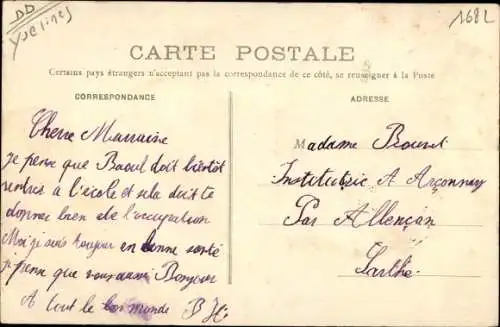 DD
Yvelines
1682
CARTE POSTALE
Certains pays étrangers n'acceptant pas la correspondance de ce côté, se renseigner à la Poste
CORRESPONDANCE
Cherre Marraine
je pense que Raoul doit bientôt
rentrer à l'école et sela doit te
donner bien de l'occupation
Moi je suis toujour en bonne santé
je pense que vous aussi Bonjour
A tout le bon monde B H
ADRESSE
Madame Bouret
Institutrice A Arçonnay
Par Allençan
Sarthe